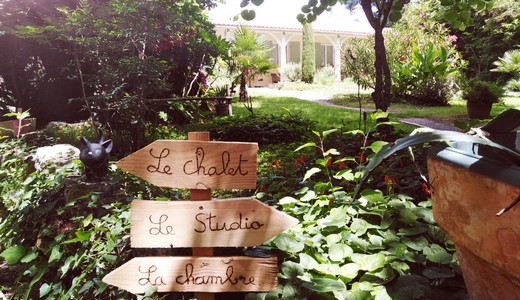 Le chalet
Le Studio
La chambre